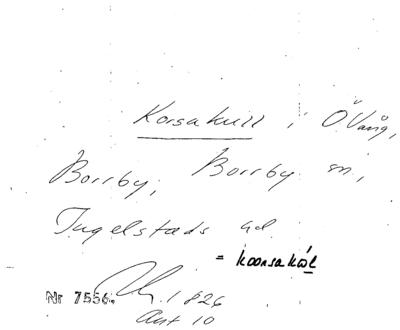 Korsakull i Ö Vång,
Borrby, Borrby sn,
Ingelstads hd
= koorsakål
Nr 7556. 1826
Ant 10